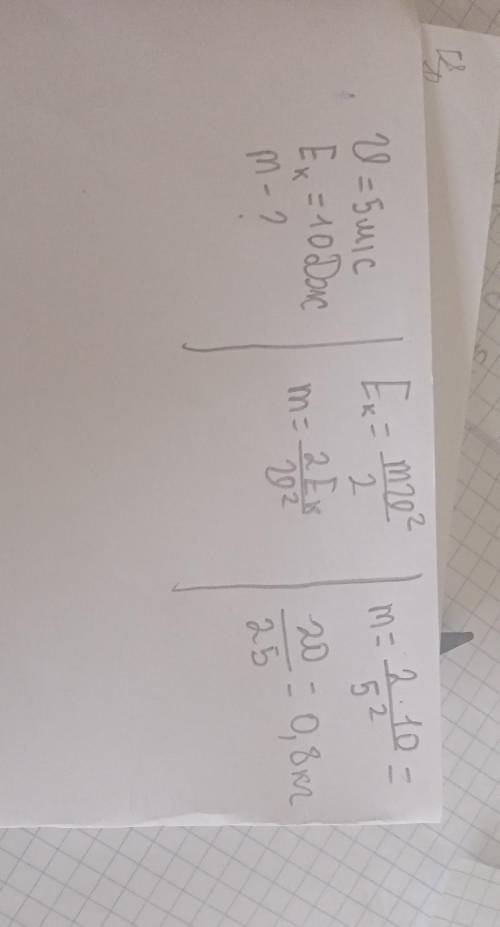 v = 5 м/с
Eк = 10 Дж
m - ?
Eк = mv²/2
m = 2Eк/v²
m = 2·10/5² =
20/25 = 0,8 кг